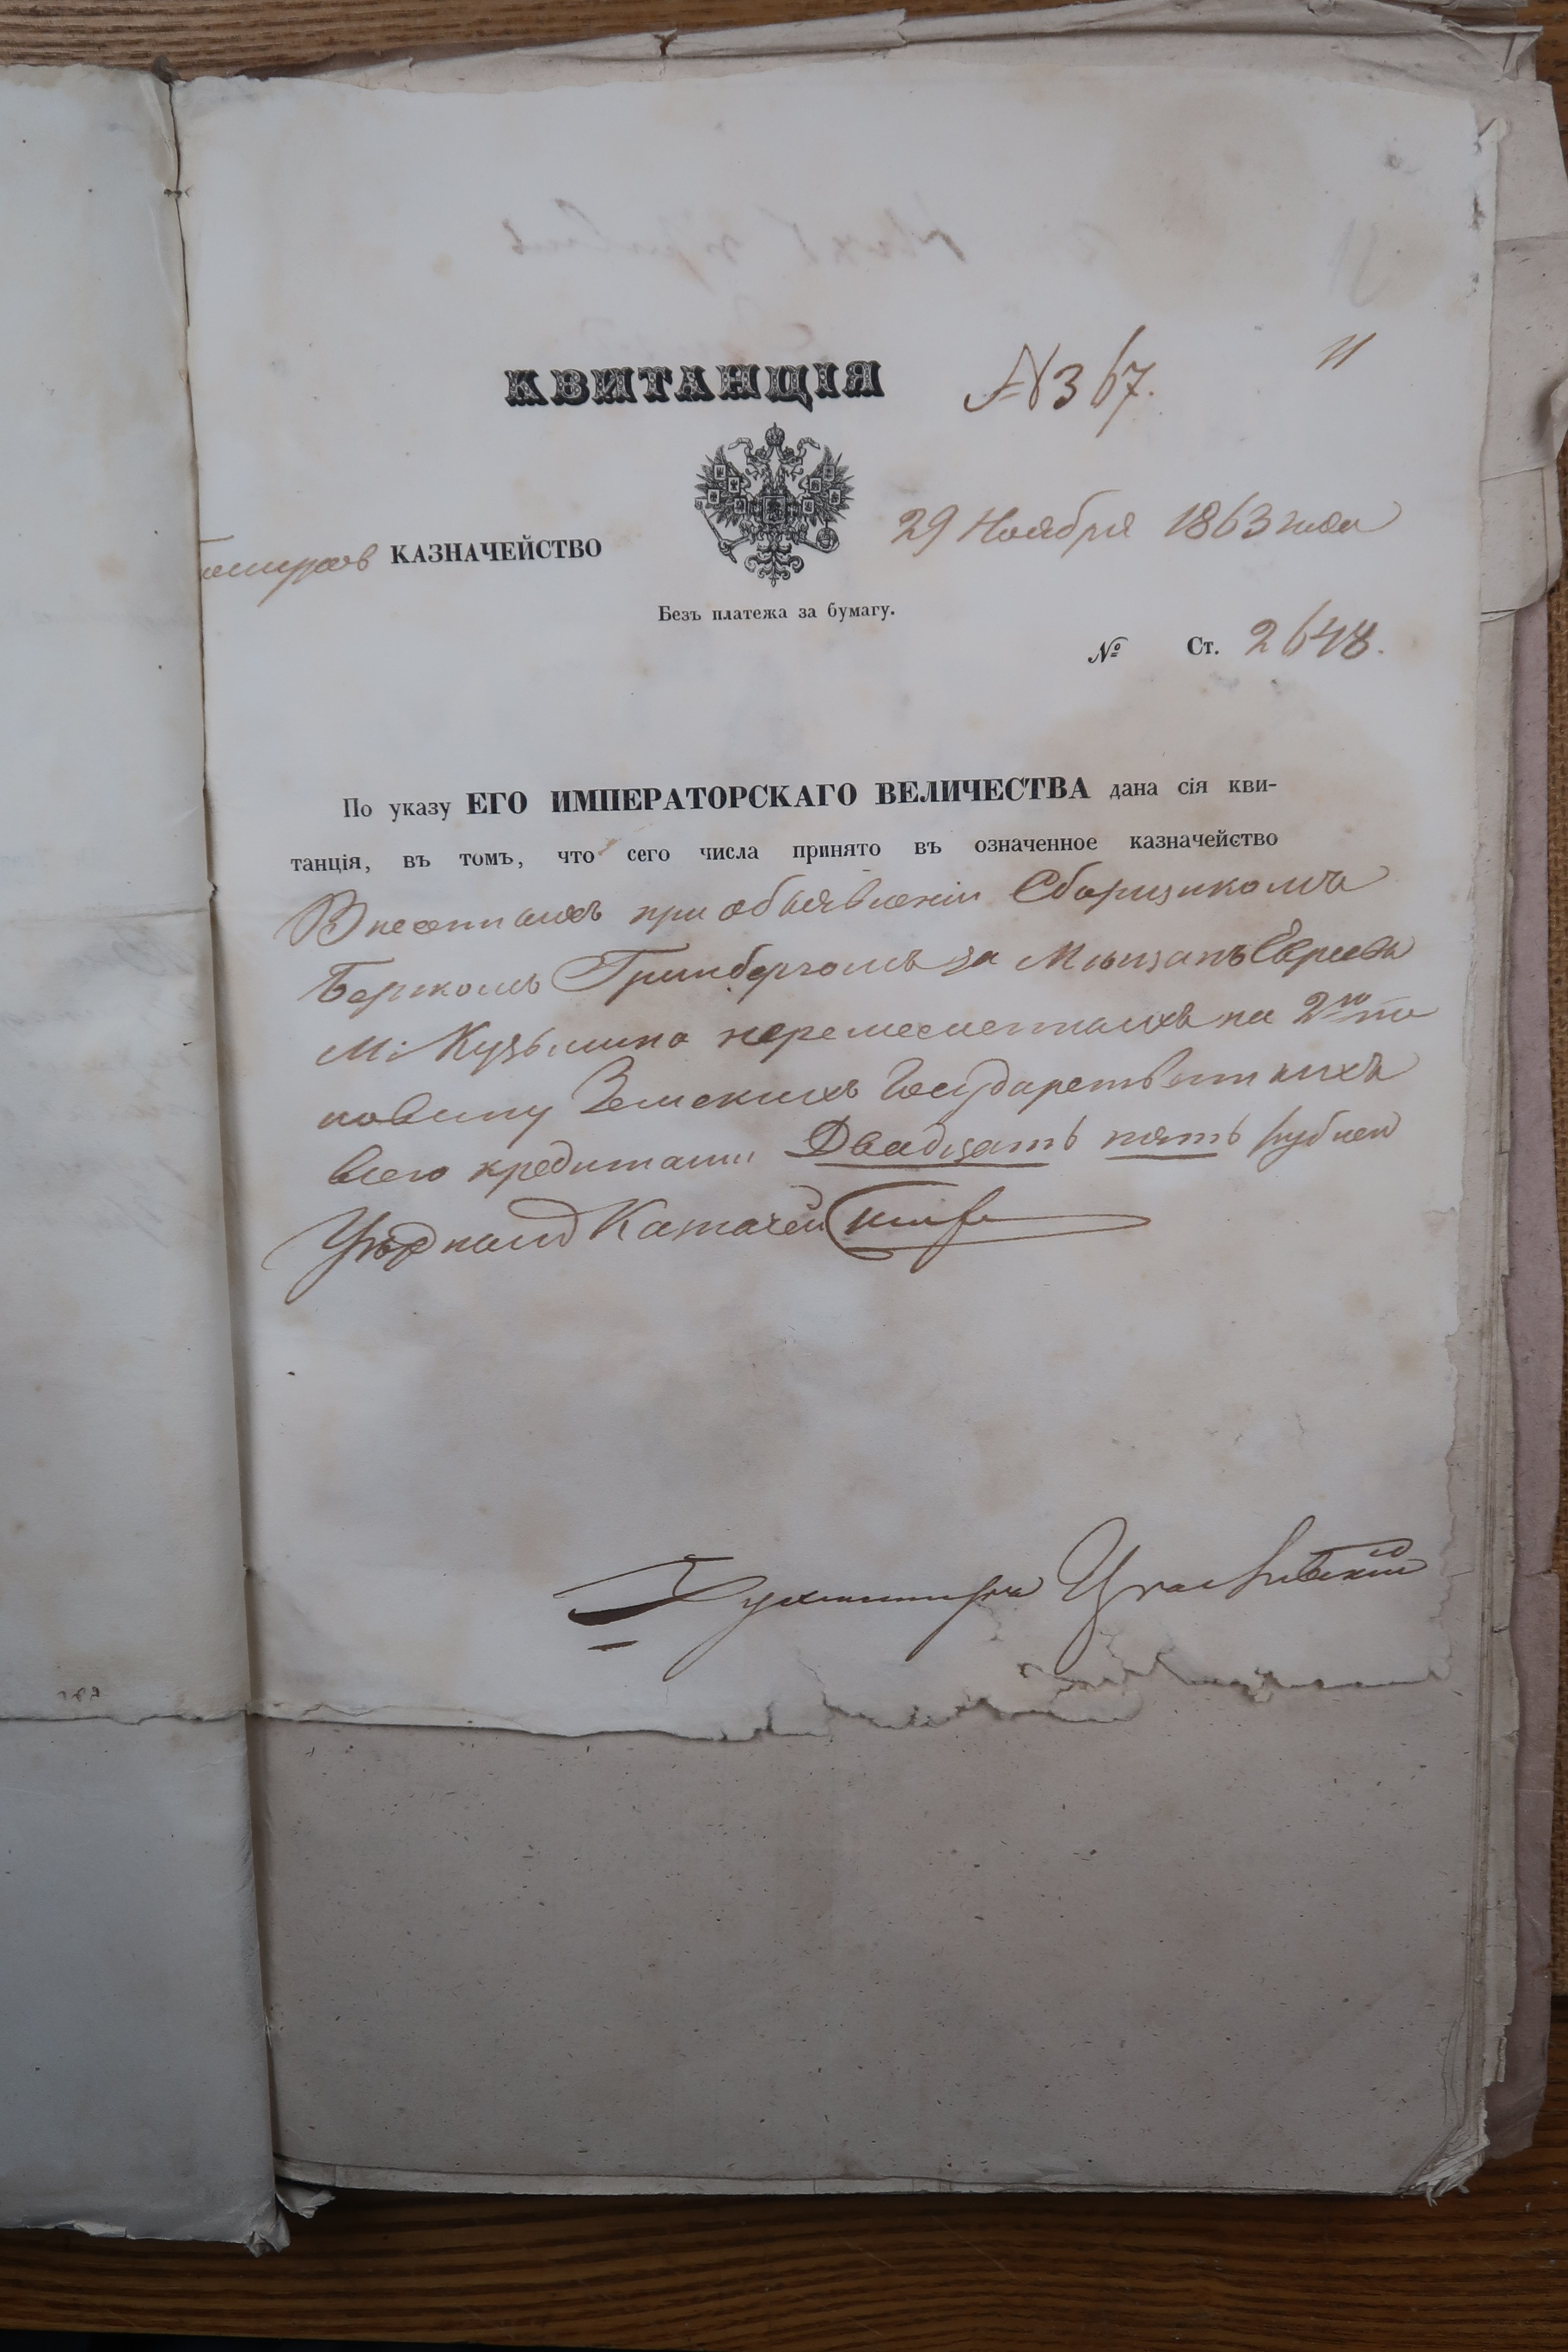 КВИТАНЦІЯ №367. 11
КАЗНАЧЕЙСТВО 29 Ноября 1863 года
Безъ платежа за бумагу.
№ Ст. 2648.
По указу ЕГО ИМПЕРАТОРСКАГО ВЕЛИЧЕСТВА дана сія кви-
танція, въ томъ, что сего числа принято въ означенное казначейство
Внесенныхъ при объявленіи Сборщикомъ
Беркомъ Гринбергомъ за Мѣщанъ Евреевъ
М: Кузьмина на 2ю по
ловину Земскихъ Государственныхъ
всего кредитными Двадцать пять рублей
Бухгалтеръ